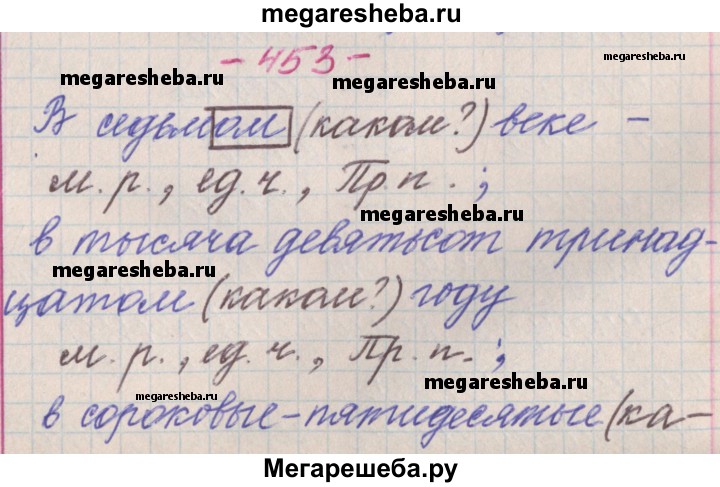 megaresheba.ru
- 453 -
megaresheba.ru
megaresheba.ru
В седьмом (каком?) веке -
м. р., ед. ч., Пр. п.;
megaresheba.ru
в тысяча девятьсот тринад-
megaresheba.ru
цатом (каком?) году
м. р., ед. ч., Пр. п.;
megaresheba.ru
megaresheba.ru
в сороковые-пятидесятые (ка-
Мегарешеба.ру